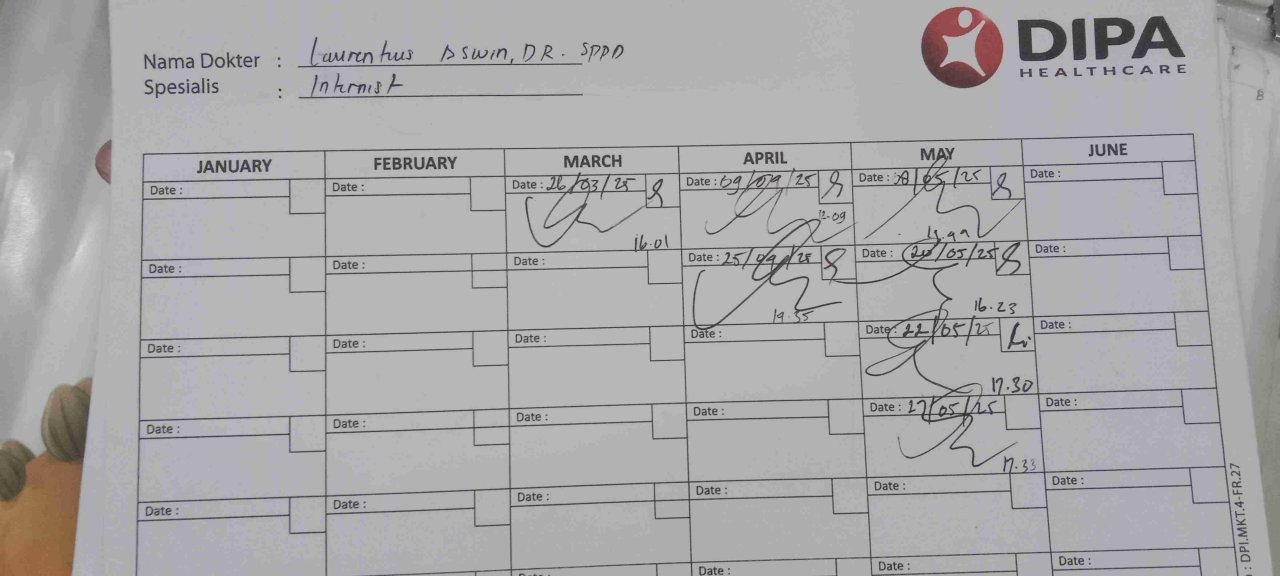 DIPA
HEALTHCARE
Nama Dokter : Laurentius Aswin, DR. SPPD
Spesialis : Internist
JANUARY FEBRUARY MARCH APRIL MAY JUNE
Date : Date : Date : 26/03/25 Date : 09/04/25 Date : 08/05/25 Date :
16.01 12.09
Date : Date : Date : Date : 25/04/25 Date : 20/05/25 Date :
19.35 16.23
Date : Date : Date : Date : Date : 22/05/25 Date :
17.30
Date : Date : Date : Date : Date : 27/05/25 Date :
17.33
Date : Date : Date : Date : Date : Date :
Date : Date : Date : Date :
: DPI.MKT.4-FR.27